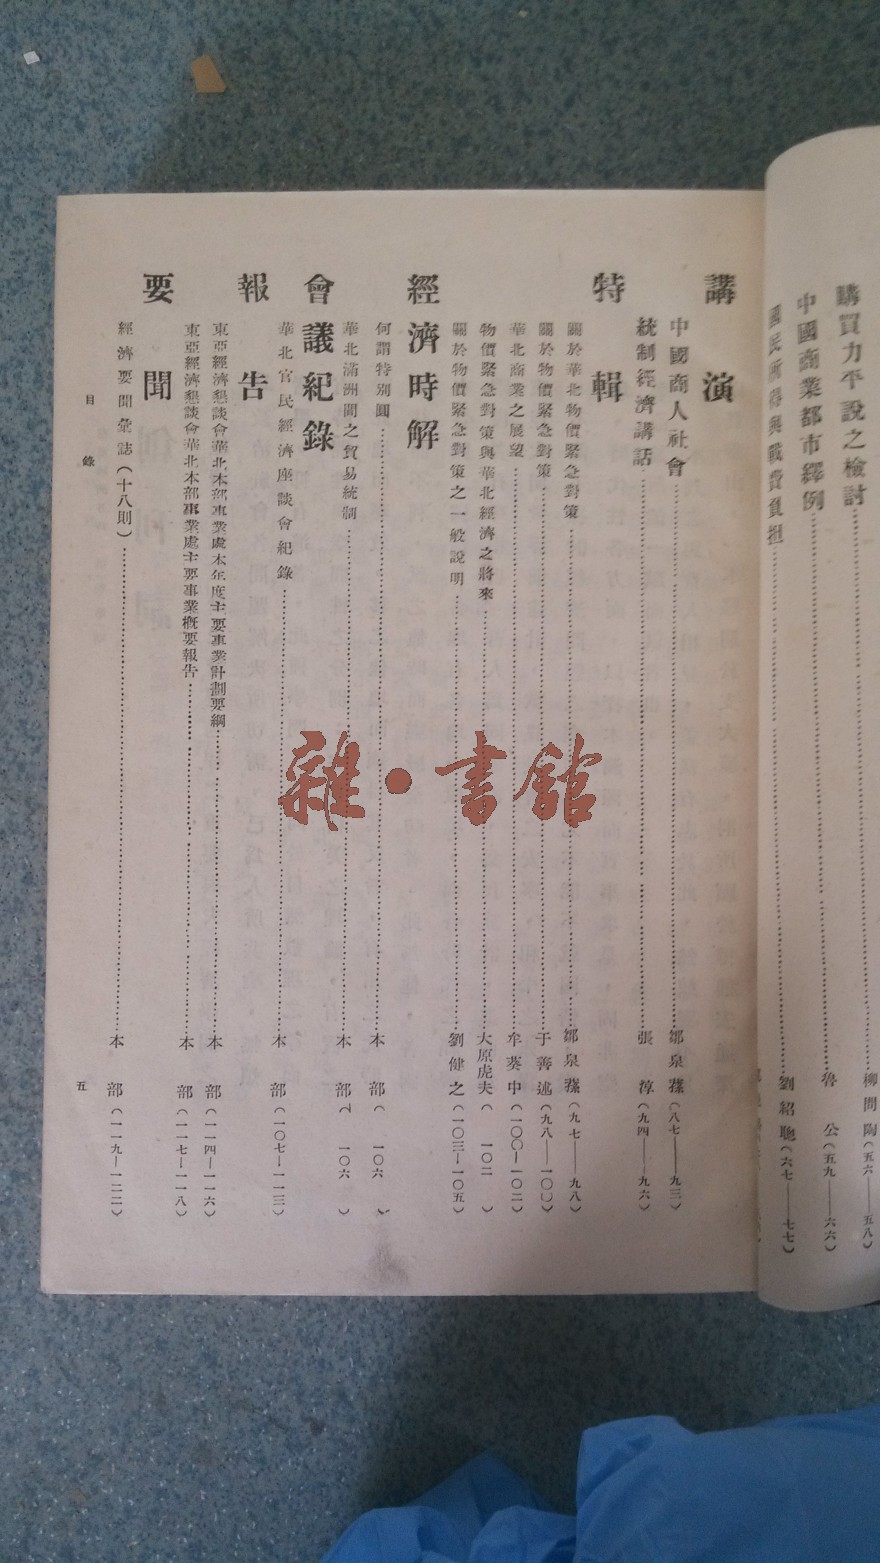 購買力平說之檢討……柳問陶(五六——五八)
中國商業都市繹例……魯 公(五九——六六)
國民所得與戰費負担……劉紹聰(六七——七七)
講演
中國商人社會……鄒泉蓀(八七——九三)
統制經濟講話……張 淳(九四——九六)
特輯
關於華北物價緊急對策……鄒泉蓀(九七——九八)
關於物價緊急對策……于善述(九八——一〇〇)
華北商業之展望……牟葵中(一〇〇—一〇二)
物價緊急對策與華北經濟之將來……大原虎夫( 一〇二 )
關於物價緊急對策之一般說明……劉健之(一〇三—一〇五)
經濟時解
何謂特別圓……本 部( 一〇六 )
華北滿洲間之貿易統制……本 部( 一〇六 )
會議紀錄
華北官民經濟座談會紀錄……本 部(一〇七—一一三)
報告
東亞經濟懇談會華北本部事業處本年度主要事業計劃要綱……本 部(一一四—一一六)
東亞經濟懇談會華北本部事業處主要事業概要報告……本 部(一一七—一一八)
要聞
經濟要聞彙誌(十八則)……本 部(一一九—一二二)
目錄
五
雜·書館